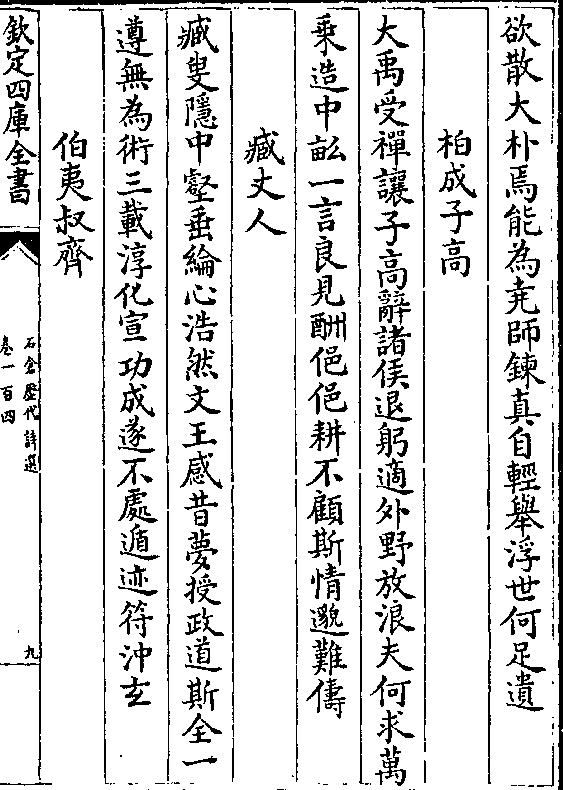 欲散大朴焉能為尭師鍊真自輕舉浮世何足遺
柏成子高
大禹受禪讓子高辭諸侯退躬適外野放浪夫何求萬
乗造中畆一言良見酬俋俋耕不顧斯情邈難儔
臧丈人
臧叟隱中壑垂綸心浩然文王感昔夢授政道斯全一
遵無為術三載淳化宣功成遂不處遁迹符沖玄
伯夷叔齊
欽定四庫全書
石倉歷代詩選
卷一百四
九